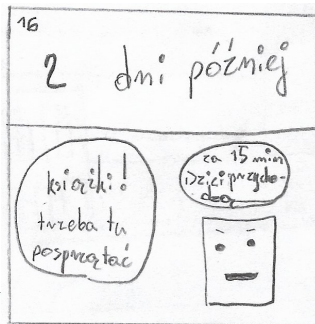 16
2 dni później
książki!
trzeba tu
posprzątać
za 15 min
Dzieci przycho-
dzą